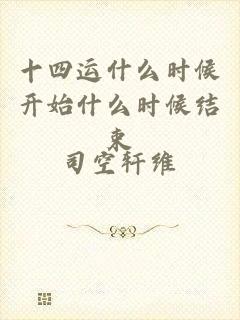 十四运什么时候
开始什么时候结
束
司空轩维